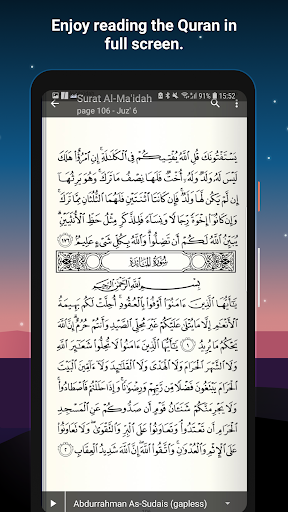 Enjoy reading the Quran in
full screen.
91% 15:52
Surat Al-Ma'idah
page 106 - Juz' 6
يَسْتَفْتُونَكَ قُلِ ٱللَّهُ يُفْتِيكُمْ فِى ٱلْكَلَـٰلَةِ إِنِ ٱمْرُؤٌا۟ هَلَكَ
لَيْسَ لَهُۥ وَلَدٌ وَلَهُۥٓ أُخْتٌ فَلَهَا نِصْفُ مَا تَرَكَ وَهُوَ يَرِثُهَآ
إِن لَّمْ يَكُن لَّهَا وَلَدٌ فَإِن كَانَتَا ٱثْنَتَيْنِ فَلَهُمَا ٱلثُّلُثَانِ مِمَّا تَرَكَ
وَإِن كَانُوٓا۟ إِخْوَةً رِّجَالًا وَنِسَآءً فَلِلذَّكَرِ مِثْلُ حَظِّ ٱلْأُنثَيَيْنِ
يُبَيِّنُ ٱللَّهُ لَكُمْ أَن تَضِلُّوا۟ وَٱللَّهُ بِكُلِّ شَىْءٍ عَلِيمٌۢ ١٧٦
سُورَةُ المَائِدَةِ
بِسْمِ ٱللَّهِ ٱلرَّحْمَـٰنِ ٱلرَّحِيمِ
يَـٰٓأَيُّهَا ٱلَّذِينَ ءَامَنُوٓا۟ أَوْفُوا۟ بِٱلْعُقُودِ أُحِلَّتْ لَكُم بَهِيمَةُ
ٱلْأَنْعَـٰمِ إِلَّا مَا يُتْلَىٰ عَلَيْكُمْ غَيْرَ مُحِلِّى ٱلصَّيْدِ وَأَنتُمْ حُرُمٌ إِنَّ ٱللَّهَ
يَحْكُمُ مَا يُرِيدُ ١ يَـٰٓأَيُّهَا ٱلَّذِينَ ءَامَنُوا۟ لَا تُحِلُّوا۟ شَعَـٰٓئِرَ ٱللَّهِ
وَلَا ٱلشَّهْرَ ٱلْحَرَامَ وَلَا ٱلْهَدْىَ وَلَا ٱلْقَلَـٰٓئِدَ وَلَآ ءَآمِّينَ ٱلْبَيْتَ
ٱلْحَرَامَ يَبْتَغُونَ فَضْلًا مِّن رَّبِّهِمْ وَرِضْوَٰنًا وَإِذَا حَلَلْتُمْ فَٱصْطَادُوا۟
وَلَا يَجْرِمَنَّكُمْ شَنَـَٔانُ قَوْمٍ أَن صَدُّوكُمْ عَنِ ٱلْمَسْجِدِ
ٱلْحَرَامِ أَن تَعْتَدُوا۟ وَتَعَاوَنُوا۟ عَلَى ٱلْبِرِّ وَٱلتَّقْوَىٰ وَلَا تَعَاوَنُوا۟
عَلَى ٱلْإِثْمِ وَٱلْعُدْوَٰنِ وَٱتَّقُوا۟ ٱللَّهَ إِنَّ ٱللَّهَ شَدِيدُ ٱلْعِقَابِ ٢
Abdurrahman As-Sudais (gapless)